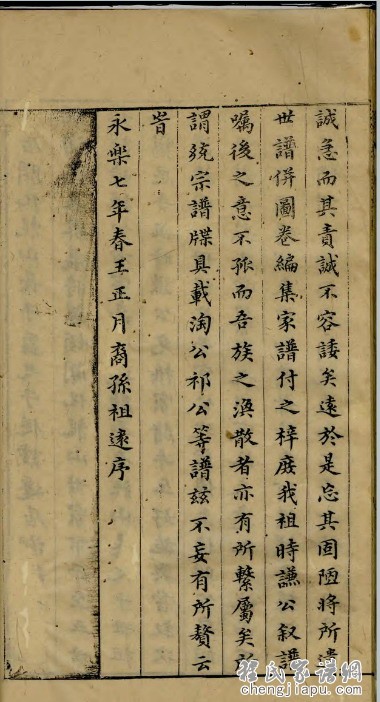 誠急而其責誠不容諉矣遠於是忘其固陋將所遺
世譜併圖卷編集家譜付之梓庶我祖時謙公叙譜
囑後之意不孤而吾族之渙散者亦有所繫屬矣所
謂統宗譜牒具載淘公祁公等譜玆不妄有所贅云
旹
永樂七年春王正月裔孫祖逺序
程氏家譜網
chengjiapu.com